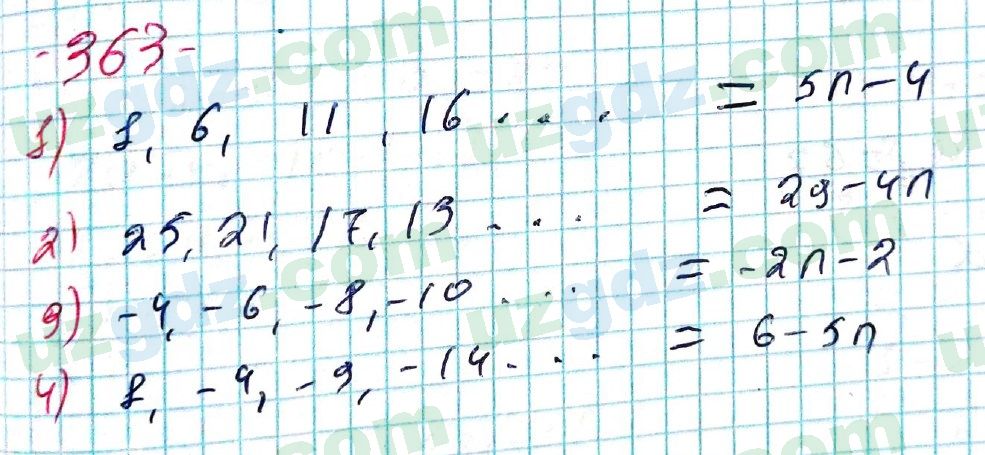 -363-
1) 1, 6, 11, 16 .... = 5n-4
2) 25, 21, 17, 13 ... = 29-4n
3) -4, -6, -8, -10 ... = -2n-2
4) 1, -4, -9, -14 ... = 6-5n
uzgdz.com